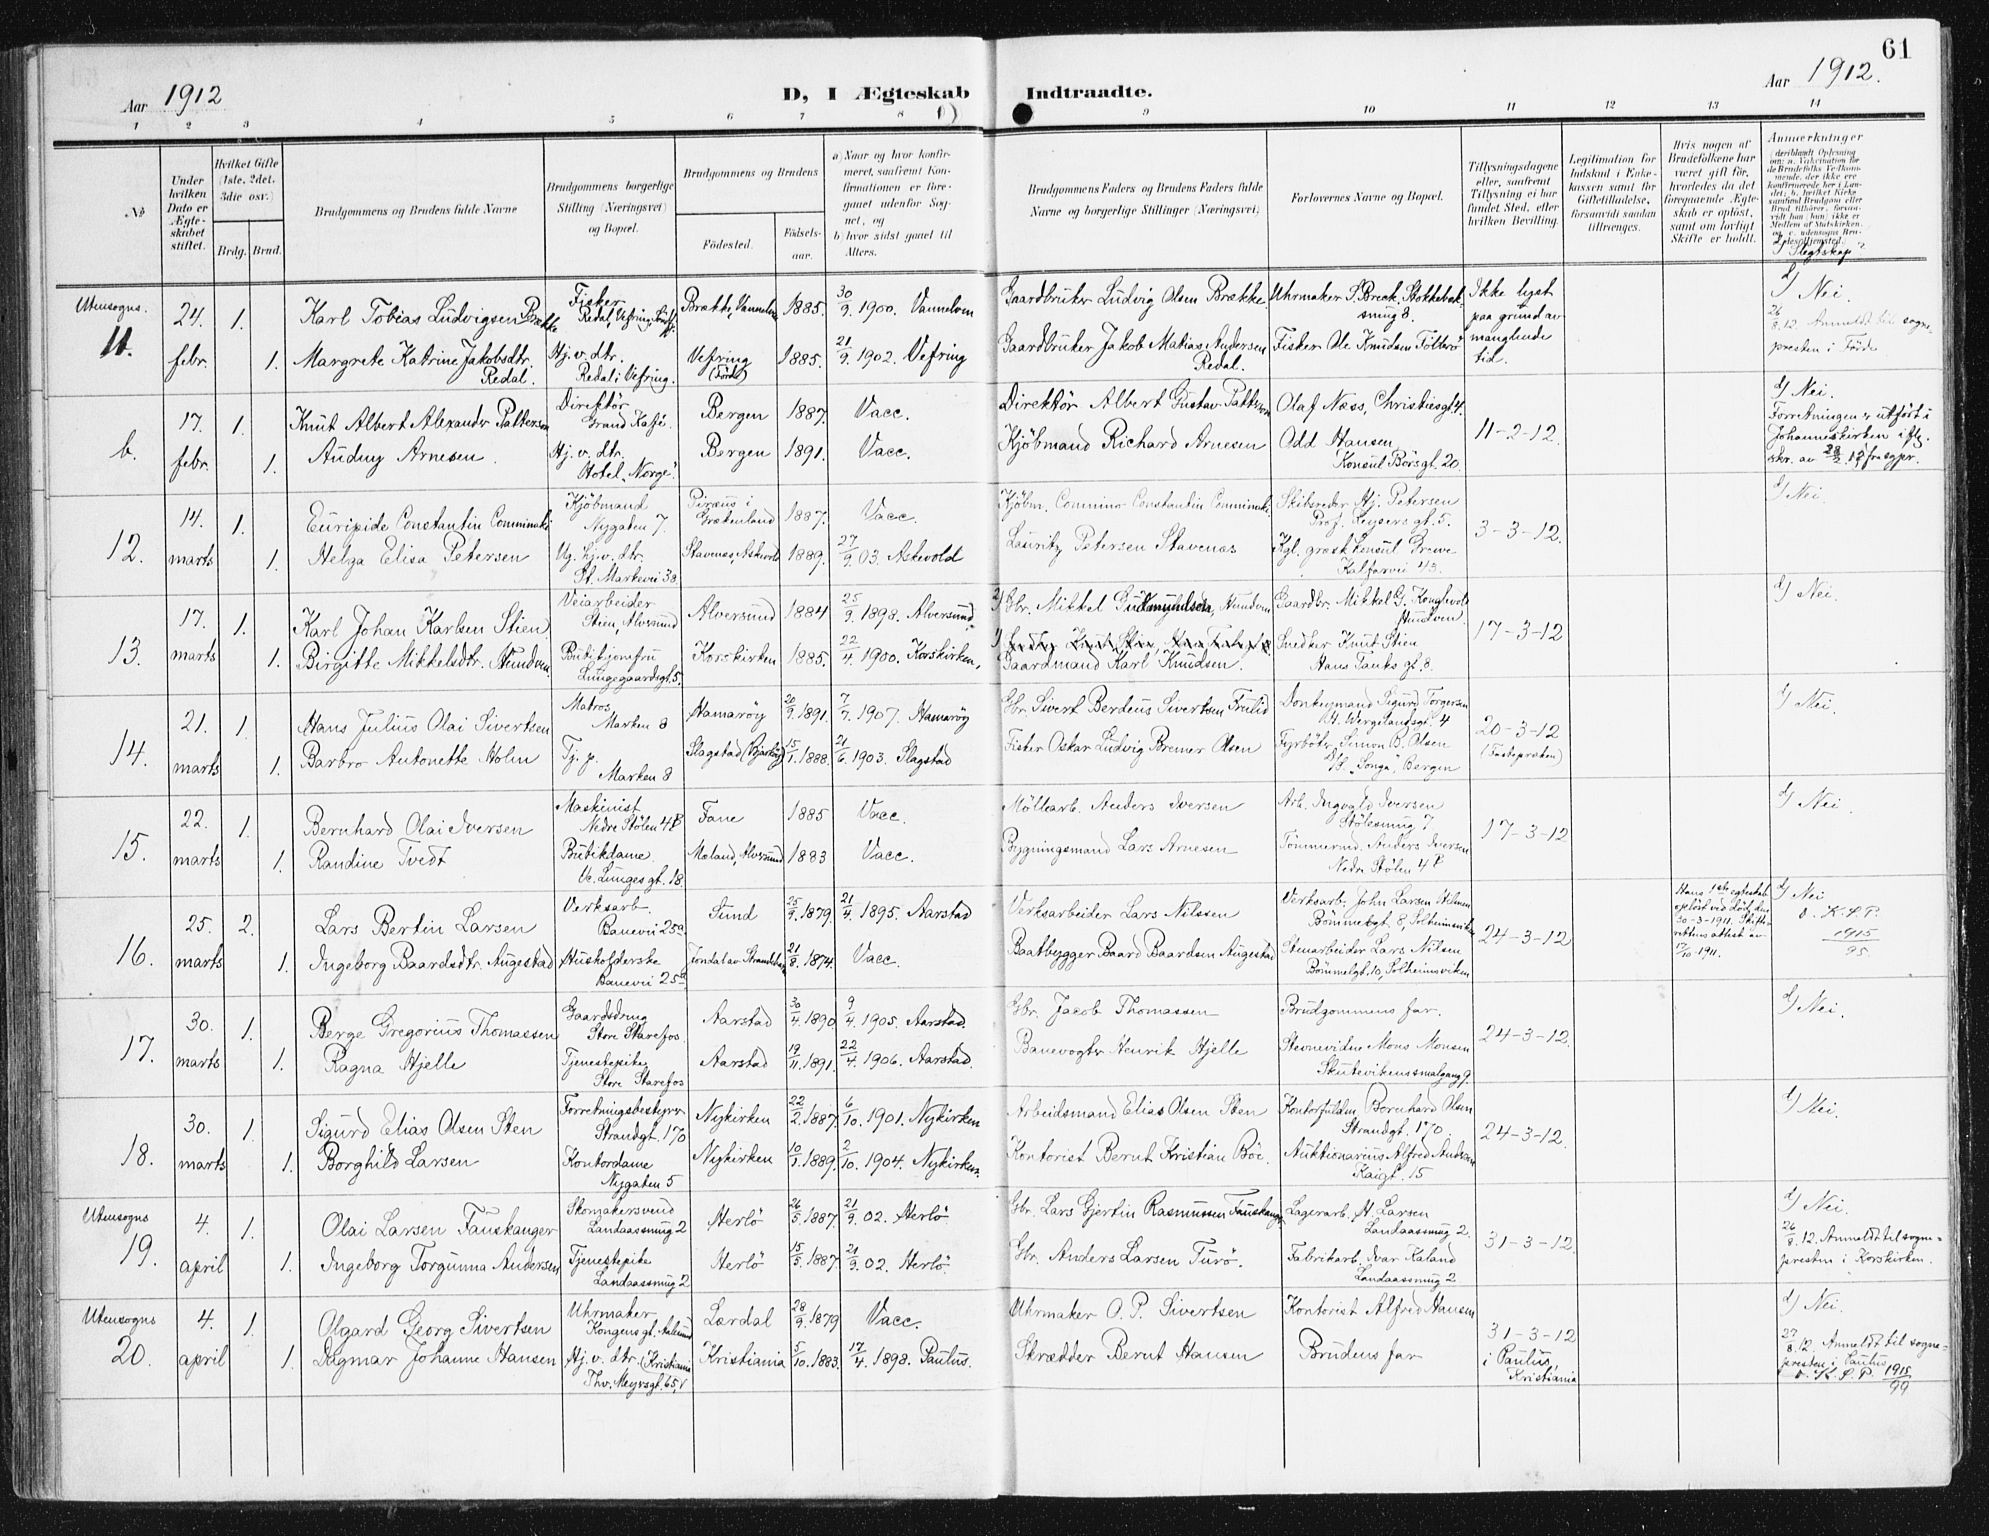 61
Aar 1912
D, I Ægteskab
Indtraadte.
Aar 1912.
1 2 3 4 5 6 7 8 9 10 11 12 13 14
No
Under hvilken Dato er Ægteskabet stiftet.
Hvilket Gifte (1ste, 2det, 3die osv.)
Brdg. Brud.
Brudgommens og Brudens fulde Navne
Brudgommens borgerlige Stilling (Næringsvei) og Bopæl.
Brudgommens og Brudens
Fødested. Fødselsaar.
a) Naar og hvor konfirmeret, saafremt Konfirmationen er foregaaet udenfor Sognet, og
b) hvor sidst gaaet til Alters.
Brudgommens Faders og Brudens Faders fulde Navne og borgerlige Stillinger (Næringsvei)
Forlovernes Navne og Bopæl.
Tillysningsdagene eller, saafremt Tillysning ei har fundet Sted, efter hvilken Bevilling.
Legitimation for Indskud i Enkekassen samt for Giftetilladelse, forsaavidt saadan tiltrænges.
Hvis nogen af Brudefolkene har været gift før, hvorledes da det foregaaende Ægteskab er opløst, samt om lovligt Skifte er holdt.
Anmerkninger
Slegtskap?
Utensogns.
11.
24. 1. Karl Tobias Ludvigsen Brække
Fisker
Brække, Vannelven 1885. 30/9 1900. Vannelven
Gaardbruker Ludvig Olsen Brække
Ikke lyst paa grund av manglende tid.
d/ Nei.
febr. 1. Margrete Katrine Jakobsdtr. Redal.
Hj. v. dtr.
Redal i Vefring.
Vefring
(Førde)
1885. 21/9 1902. Vefring
Gaardbruker Jakob Matias Andersen Redal.
Fisker Ole Knudsen
26/8.12. Anmeldt til sognepresten i Førde
b.
17. 1. Knut Albert Alexander Pattersson
Direktør
Grand Kafé.
Bergen 1887. Vacc.
Direktør Albert Gustav Pattersson
Olaf Næss, Christiesgt. 4.
11-2-12.
d/ Nei.
Forretningen er utført i Johanneskirken
febr. 1. Audny Arnesen.
Hj. v. dtr.
Hotel „Norge".
Bergen 1891. Vacc.
Kjøbmand Richard Arnesen
Odd Hansen,
Konsul Børsgt. 20.
12.
14. 1. Euripide Constantin Comminaki
Kjøbmand
Nygaten 7.
Piræus i Grækenland 1887. Vacc.
Kjøbm. Comnino Constantin Comninaki.
Skibsreder Hj. Petersen
Prof. Keysers gt. 5.
3-3-12.
d/ Nei.
marts 1. Helga Elisa Petersen
Ug. hj. v. dtr.
St. Markevei 38
Stavenæs, Askvold 1889. 27/9 03. Askevold
Lauritz Petersen Stavenæs
Kgl. græsk konsul Greve
Kalfarvei 43.
13.
17. 1. Karl Johan Karlsen Stien
Veiarbeider
Stien, Alversund
Alversund 1884 25/9 1898. Alversund.
2/ Gbr. Mikkel Gudmundsen, Hundven
Gaardbr. Mikkel G. Hundven
17-3-12
d/ Nei.
marts 1. Birgitte Mikkelsdtr. Hundven.
Butikjomfru
Lungegaardsgt. 5.
Korskirken 1885. 22/4 1900. Korskirken,
1/ Gaardmand Karl Knudsen.
Snedker Knut Stien
Hans Tanks gt. 8.
14.
21. 1. Hans Julius Olai Sivertsen
Matros,
Marken 8
Hamarøy 20/9 1891. 7/7 1907. Hamarøy
Gbr. Sivert Berdeus Sivertsen
Donkeymand Sigurd Torgersen
H. Wergelandsgt. 4
20-3-12
d/ Nei.
marts 1. Barbro Antonette Holm
Tj. p.
Marken 8
Slagstad (Bjarkøy) 15/1 1888. 21/6 1903. Slagstad
Fisker Oskar Ludvig Bremer Olsen
Fyrbøter Simon B. Olsen
D/S. „Songa", Bergen
15.
22. 1. Bernhard Olai Iversen
Maskinist
Nedre Stølen 4B
Fane 1885 Vacc.
Møllearb. Anders Iversen
Arb. Ingvald Iversen
Stølesmug 7
17-3-12
d/ Nei.
marts 1. Randine Tvedt
Butikdame.
Vc. Lunges gt. 18.
Mæland, Alversund 1883 Vacc.
Bygningsmand Lars Arnesen
Tømmermd. Anders Iversen
Nedre Stølen 4B
16.
25. 2. Lars Bertin Larsen
Verksarb.
Banevei 25a
Sund 25/9 1879. 21/4 1895. Aarstad
Verksarbeider Lars Nilssen
Verksarb. John Larsen
Bømmelgt. 8, Solheimsviken
24-3-12
Hans 1ste egteskab opløst ved død, den 30-3-1911. Skifterettens attest av 17/10-1911.
d/ Nei
O. K. S. P.
1915/95.
marts 1. Ingeborg Baardsdtr. Augestad
Husholderske
Banevei 25a
Tondal av Strandebarm 21/8 1874. Vacc.
Baatbygger Baard Baardsen Augestad
Stenarbeider Lars Nilsen
Bømmelgt. 10, Solheimsviken
17.
30. 1. Berge Gregorius Thomassen
Gaardsdreng
Store Starefos.
Aarstad 30/4 1890 9/4 1905. Aarstad.
Gbr. Jacob Thomassen
Brudgommens far.
24-3-12.
d/ Nei.
marts 1. Ragna Hjelle
Tjenestepike
Store Starefos
Aarstad 19/11 1891. 22/4 1906. Aarstad.
Banevogter Henrik Hjelle
Stevnevidne Mons Monsen
Skutevikensmalgang 9.
18.
30. 1. Sigurd Elias Olsen Sten
Forretningsbestyrer
Strandgt. 170
Nykirken 22/2 1887. 6/10 1901. Nykirken
Arbeidsmand Elias Olsen Sten
Kontorfuldm. Bernhard Olsen
Strandgt. 170.
24-3-12.
d/ Nei.
marts 1. Borghild Larsen
Kontordame
Nygaten 5
Nykirken 10/1 1889. 2/10 1904. Nykirken.
Kontorist Bernt Kristian Böe.
Auktionarius Alfred Andersen
Kaigt. 15
Utensogns
19.
4. 1. Olai Larsen Fauskanger
Skomakersvend
Landaassmug 2
Herlø 26/5 1887. 21/9 02. Herlø
Gbr. Lars Gjertin Rasmussen Fauskanger
Lagerarb. H. Larsen
Landaassmug 2.
31-3-12.
d/ Nei.
april 1. Ingeborg Torgunna Andersen
Tjenestepike
Landaassmug 2
Herlø 15/5 1887. 21/9 02. Herlø.
Gbr. Anders Larsen Turø.
Fabrikarb. Ivar Kaland
Landaassmug 2
26/8.12. Anmeldt til sognepresten i Korskirken.
Utensogns
20.
4. 1. Olgard Georg Sivertsen
Uhrmaker
Kongensgt. Aalesund
Lærdal 28/9 1879 Vacc.
Uhrmaker O. P. Sivertsen
Kontorist Alfred Hansen
31-3-12 i Paulus, Kristiania
d/ Nei.
april 1. Dagmar Johanne Hansen
Hj. v. dtr. (Kristiania
Thv. Meyersgt. 65, V
Kristiania 5/10 1883. 17/4 1898. Paulus.
Skrædder Bernt Hansen
Brudens far
27/8.12. Anmeldt til sognepresten i Paulus
O. K. S. P. 1915/99